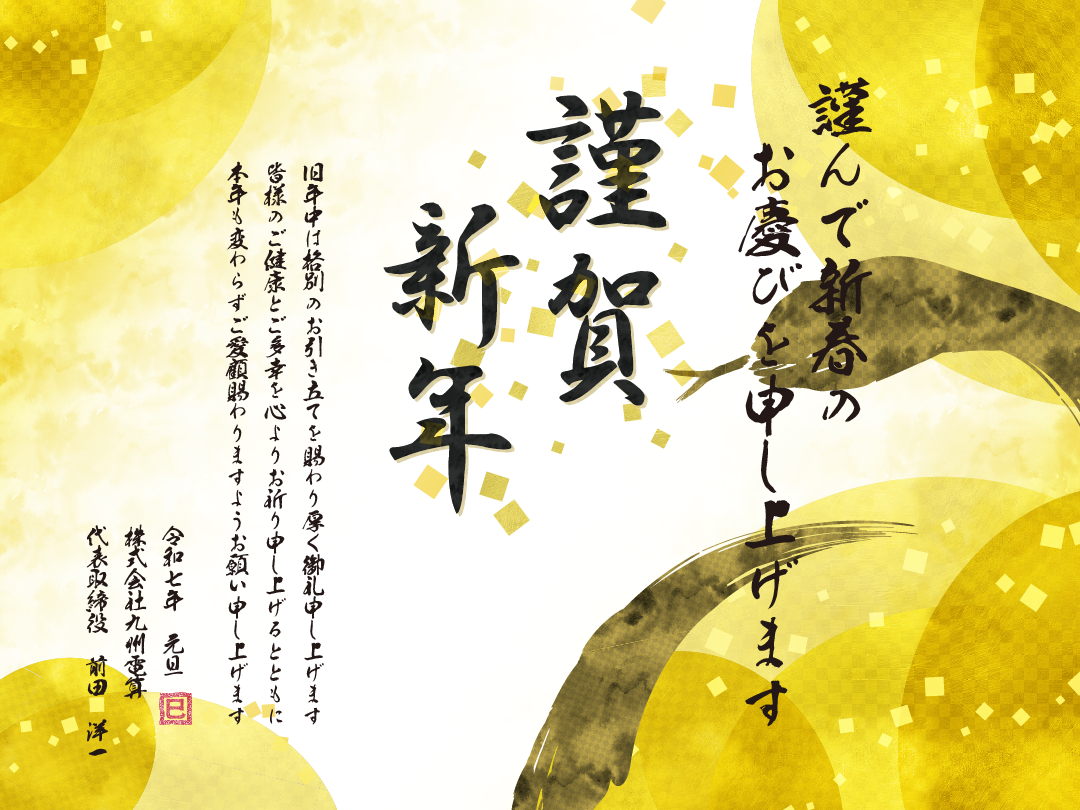 謹んで新春の
お慶びを申し上げます
謹賀
新年
旧年中は格別のお引き立てを賜わり厚く御礼申し上げます
皆様のご健康とご多幸を心よりお祈り申し上げるとともに
本年も変わらずご愛顧賜わりますようお願い申し上げます
令和七年 元旦
巳
株式会社九州電算
代表取締役 前田 洋一